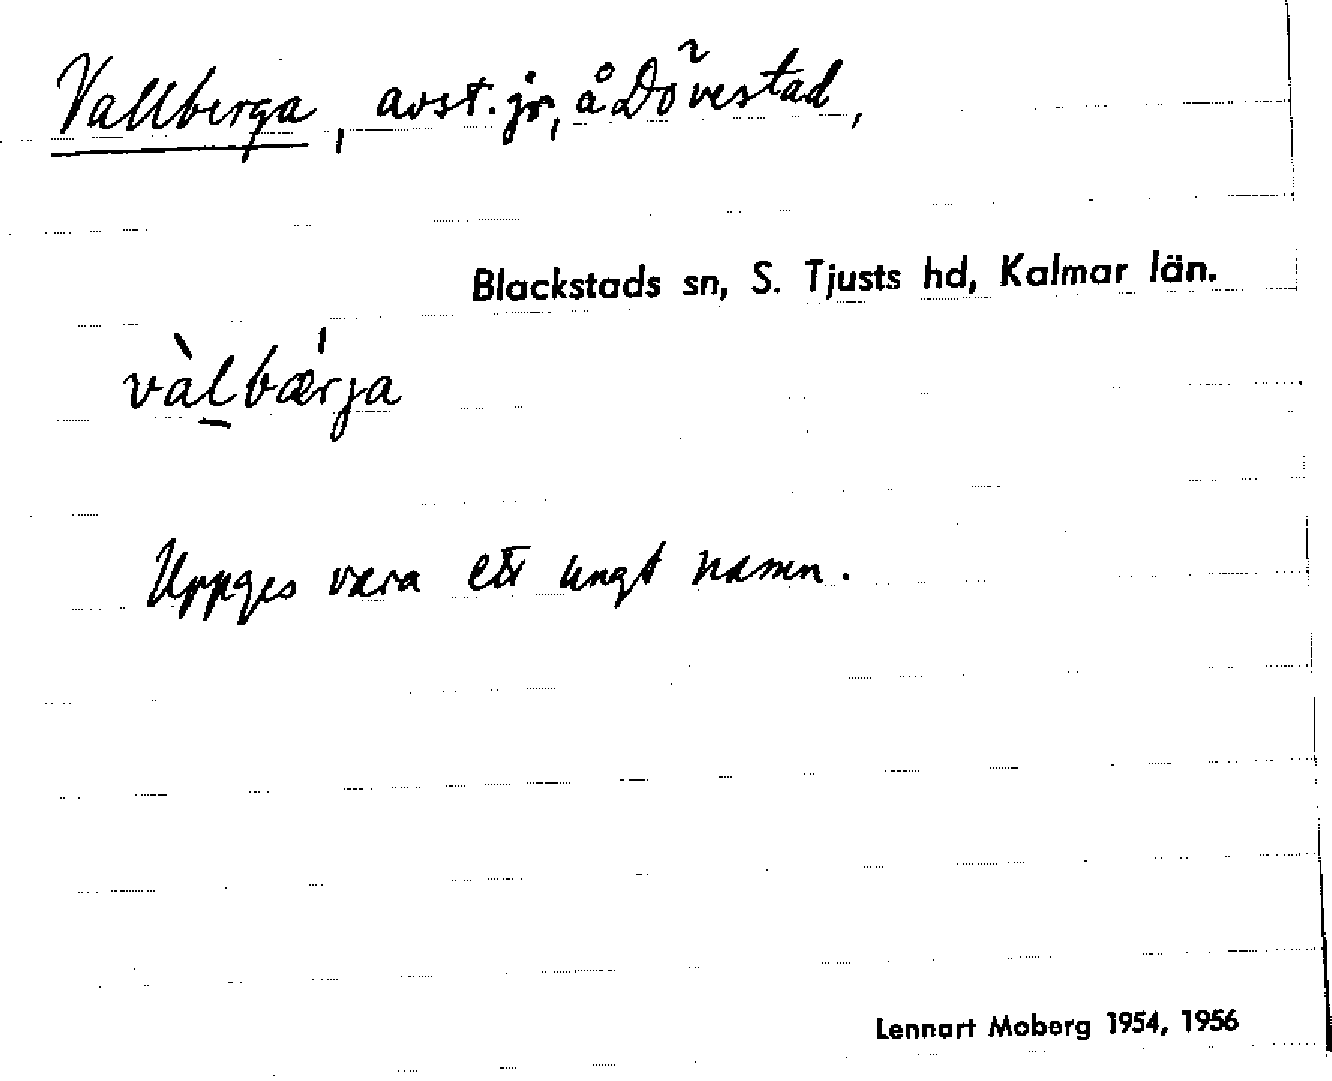 Vallberga, avst. jr, å Dövestad,
Blackstads sn, S. Tjusts hd, Kalmar län.
vàl̠bæ̍rja
Uppges vara ett ungt namn.
Lennart Moberg 1954, 1956